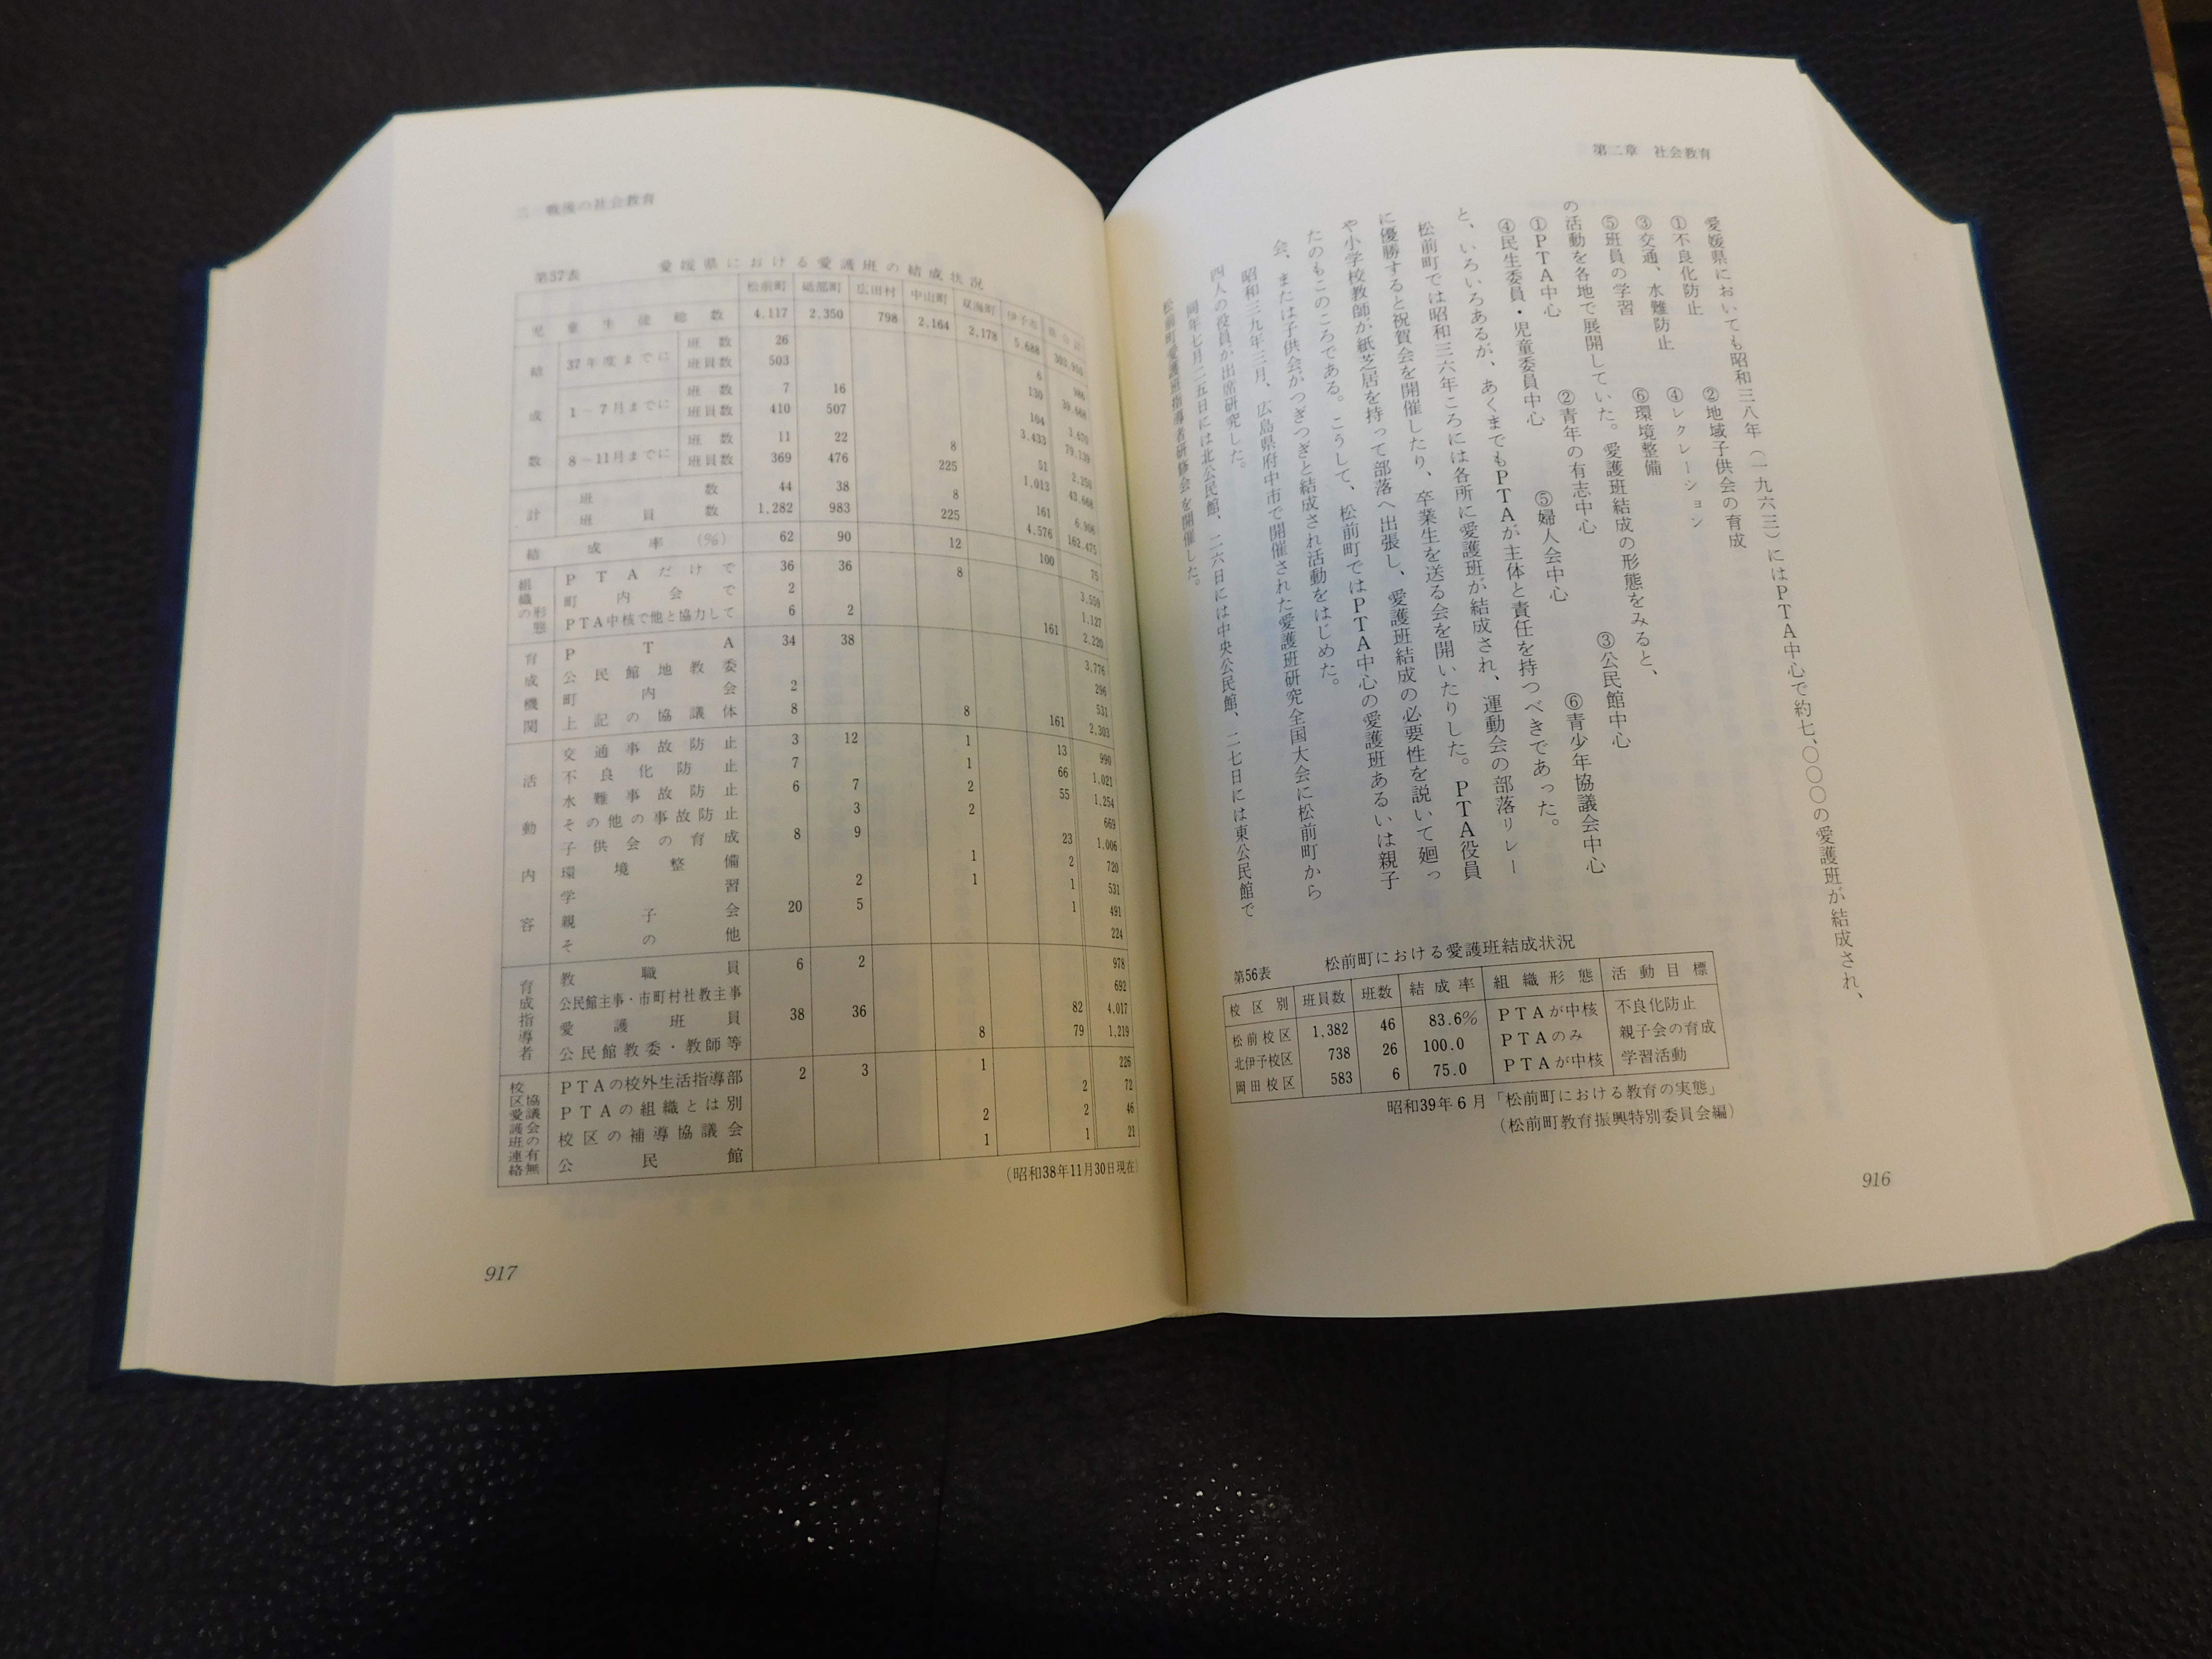 第二章 社会教育
愛媛県においても昭和三八年（一九六三）にはPTA中心で約七、〇〇〇の愛護班が結成され、
①不良化防止 ②地域子供会の育成
③交通、水難防止 ④レクレーション
⑤班員の学習 ⑥環境整備
の活動を各地で展開していた。愛護班結成の形態をみると、
①PTA中心 ②青年の有志中心 ③公民館中心
④民生委員・児童委員中心 ⑤婦人会中心 ⑥青少年協議会中心
と、いろいろあるが、あくまでもPTAが主体と責任を持つべきであった。
松前町では昭和三六年ころには各所に愛護班が結成され、運動会の部落リレー
に優勝すると祝賀会を開催したり、卒業生を送る会を開いたりした。PTA役員
や小学校教師が紙芝居を持って部落へ出張し、愛護班結成の必要性を説いて廻っ
たのもこのころである。こうして、松前町ではPTA中心の愛護班あるいは親子
会、または子供会がつぎつぎと結成され活動をはじめた。
昭和三九年三月、広島県府中市で開催された愛護班研究全国大会に松前町から
四人の役員が出席研究した。
同年七月二五日には北公民館、二六日には中央公民館、二七日には東公民館で
松前町愛護班指導者研修会を開催した。
第56表 松前町における愛護班結成状況
校区別 班員数 班数 結成率 組織形態 活動目標
松前校区 1,382 46 83.6% PTAが中核 不良化防止
北伊予校区 738 26 100.0 PTAのみ 親子会の育成
岡田校区 583 6 75.0 PTAが中核 学習活動
昭和39年6月「松前町における教育の実態」
（松前町教育振興特別委員会編）
916
二 戦後の社会教育
第57表 愛媛県における愛護班の結成状況
松前町 砥部町 広田村 中山町 双海町 伊予市 県合計
児童生徒総数 4,117 2,350 798 2,164 2,178 5,688 303,910
結成数
37年度までに 班数 26 6 986
班員数 503 130 39,668
1～7月までに 班数 7 16 104 3,670
班員数 410 507 3,433 79,139
8～11月までに 班数 11 22 8 51 2,250
班員数 369 476 225 1,013 43,668
計 班数 44 38 8 161 6,906
班員数 1,282 983 225 4,576 162,475
結成率（%） 62 90 12 100 75
組織の形態
PTAだけで 36 36 8 3,559
町内会で 2 1,127
PTA中核で他と協力して 6 2 161 2,220
育成機関
PTA 34 38 3,776
公民館地教委 296
町内会 2 531
上記の協議体 8 8 161 2,303
活動内容
交通事故防止 3 12 1 13 990
不良化防止 7 1 66 1,021
水難事故防止 6 7 2 55 1,254
その他の事故防止 3 2 669
子供会の育成 8 9 23 1,006
環境整備 1 2 720
学習 2 1 1 531
親子会 20 5 1 491
その他 224
育成指導者
教職員 6 2 978
公民館主事・市町村社教主事 692
愛護班員 38 36 82 4,017
公民館教委・教師等 8 79 1,219
校区愛護班連絡協議会の有無
PTAの校外生活指導部 2 3 1 226
PTAの組織とは別 2 72
校区の補導協議会 2 2 46
公民館 1 1 21
（昭和38年11月30日現在）
917